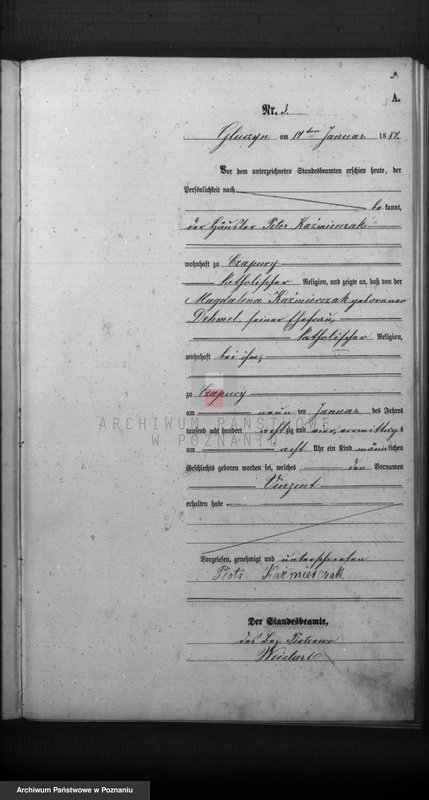 3.
A.
Nr. 3.
Gluszyn am 14 ten Januar 1884.
Vor dem unterzeichneten Standesbeamten erschien heute, der
Persönlichkeit nach
be kannt,
der Häusler Peter Kaźmierczak
wohnhaft zu Czapury
katholischer Religion, und zeigte an, daß von der
Magdalena Kaźmierczak geborenen
Dehmel, seiner Ehefrau,
katholischer Religion,
wohnhaft bei ihm,
zu Czapury
am neun ten Januar des Jahres
tausend acht hundert acht zig und vier, vormittags
um acht Uhr ein Kind männlichen
Geschlechts geboren worden sei, welches den Vornamen
Vinzent
erhalten habe.
Vorgelesen, genehmigt und unterschrieben
Piotr Kaźmierczak.
Der Standesbeamte,
des Bez. Piotrowo
ARCHIWUM PAŃSTWOWE
W POZNANIU
Archiwum Państwowe w Poznaniu